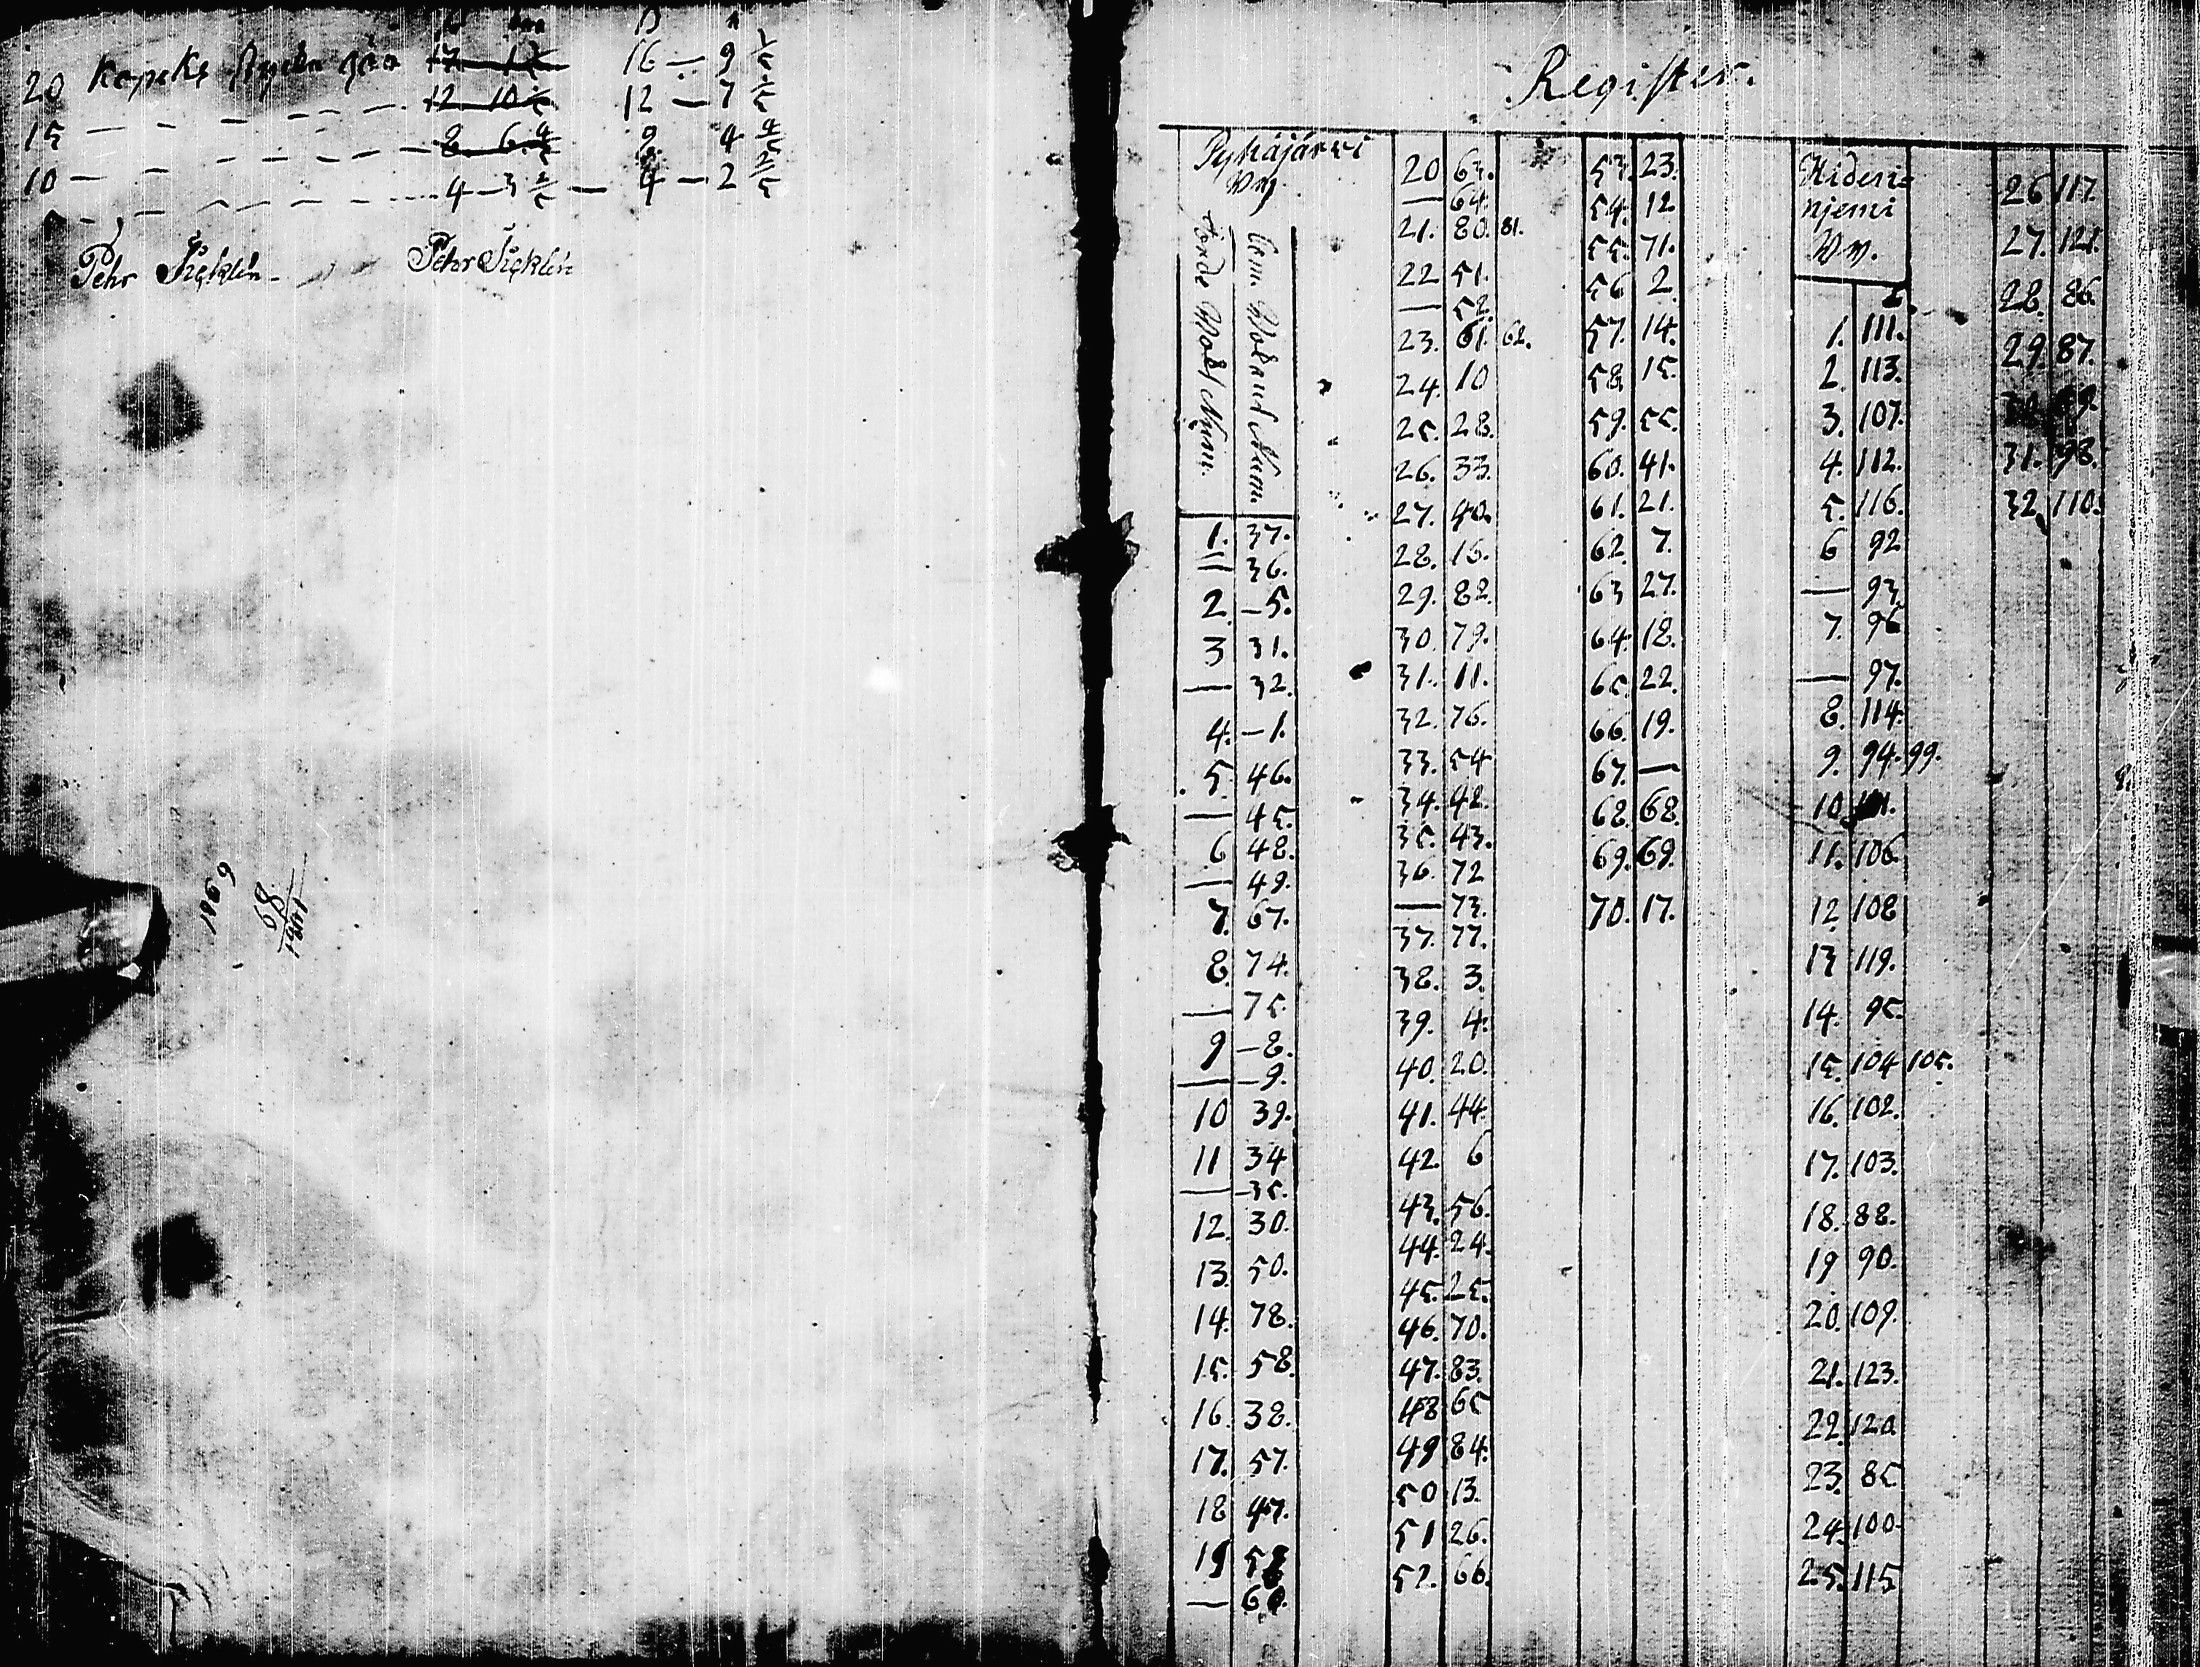 20 Kopeks stycken gåa 17 — 12 16 — 9 1/5
15 — — — — — 12 10 2/5 12 — 7 1/5
10 — — — — — 8. 6. 4/5 9 4 4/5
4 — 3 2/5 — 4 — 2 2/5
Pehr Sicklén Petər Sicklén
Register.
Pyhäjärvi
By.
1. 37.
— 36.
2. — 5.
3 31.
— 32.
4. — 1.
5. 46.
— 45.
6 48.
— 49.
7. 67.
8. 74.
— 75.
9 — 8.
— — 9.
10 39.
11 34
— 35.
12. 30.
13. 50.
14. 78.
15. 58.
16. 38.
17. 57.
18 47.
19 58
— 60.
20 63.
— 64.
21. 80. 81.
22 51.
— 52.
23. 61. 62.
24. 10
25. 28.
26. 33.
27. 40.
28. 16.
29. 82.
30. 79.
31. 11.
32. 76.
33. 54
34. 42.
35. 43.
36. 72
— 73.
37. 77.
38. 3.
39. 4.
40. 20.
41. 44.
42. 6
43. 56.
44. 24.
45. 25.
46. 70.
47. 83.
48 65
49 84.
50 13.
51 26.
52. 66.
53. 23.
54. 12.
55. 71.
56 2.
57. 14.
58. 15.
59. 55.
60. 41.
61. 21.
62. 7.
63 27.
64. 18.
65. 22.
66. 19.
67. —
68. 68.
69. 69.
70. 17.
Hideni=
njemi
By.
1. 111.
2. 113.
3. 107.
4. 112.
5. 116.
6 92
— 93.
7. 96
— 97.
8. 114.
9. 94. 99.
10. 101.
11. 106.
12. 108
13 119.
14. 95.
15. 104 105.
16. 102.
17. 103.
18. 88.
19 90.
20. 109.
21. 123.
22. 120.
23. 85
24. 100.
25. 115
26 117.
27. 121.
28. 86.
29. 87.
30. 89.
31. 98.
32. 110.